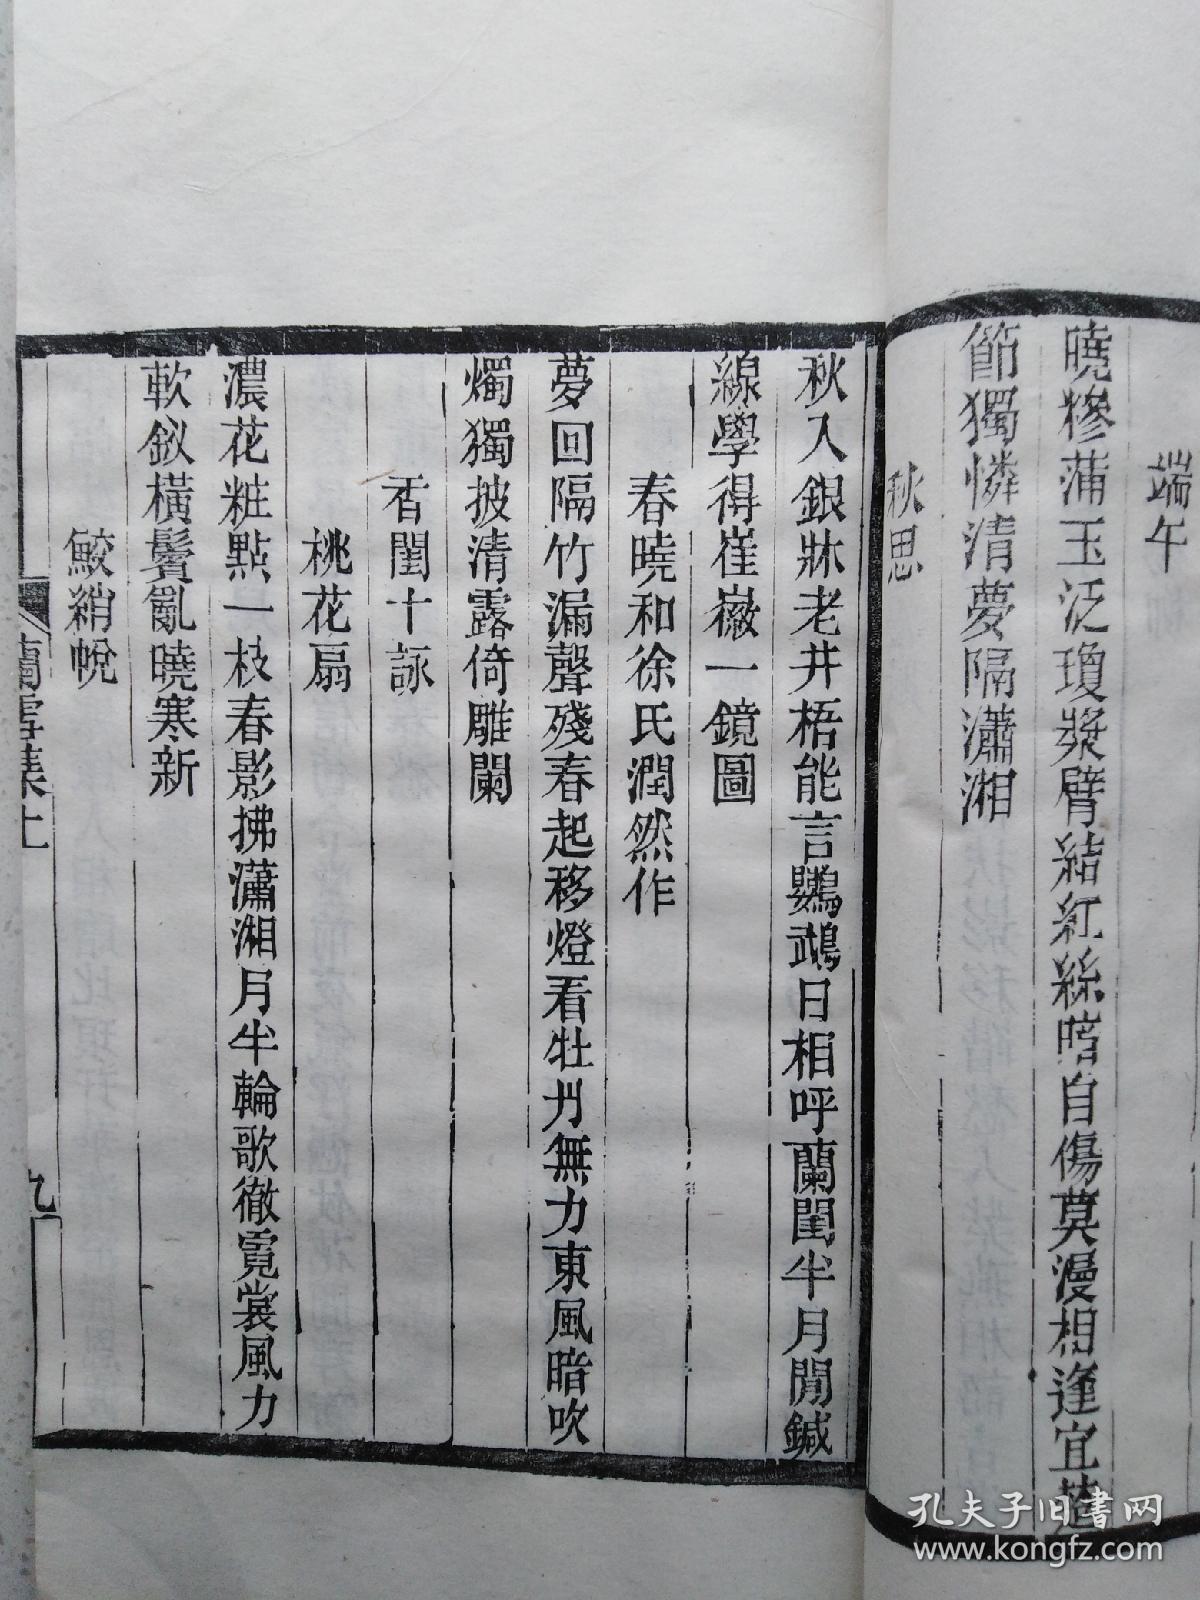 端午
曉糝蒲玉泛瓊漿臂結紅絲喑自傷莫漫相逢宜
節獨憐清夢隔瀟湘
秋思
秋入銀牀老井梧能言鸚鵡日相呼蘭閨半月閒鍼
線學得崔徽一鏡圖
春曉和徐氏潤然作
夢回隔竹漏聲殘春起移燈看牡丹無力東風暗吹
燭獨披清露倚雕闌
香閨十詠
桃花扇
濃花粧點一枝春影拂瀟湘月半輪歌徹霓裳風力
軟釵橫鬢亂曉寒新
鮫綃帨
蘭雪集上
九
孔夫子旧书网
www.kongfz.com